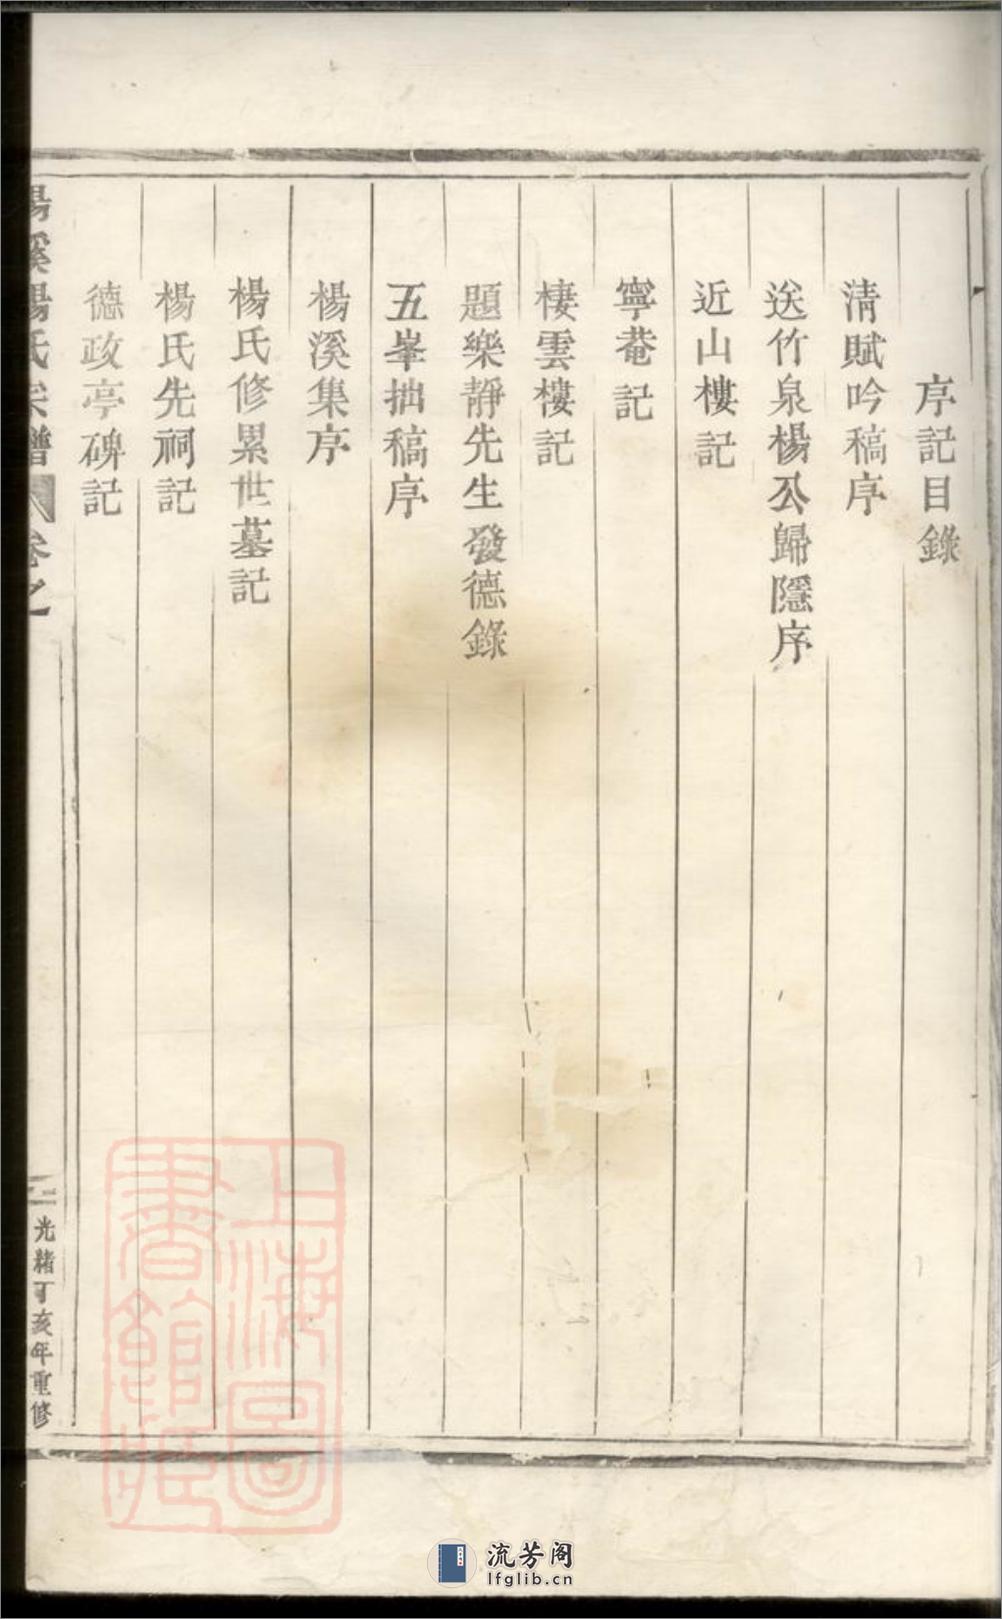 序記目錄
清賦吟稿序
送竹泉楊公歸隱序
近山樓記
寧菴記
棲雲樓記
題樂靜先生發德錄
五峯拙稿序
楊溪集序
楊氏修累世墓記
楊氏先祠記
德政亭碑記
楊溪楊氏宗譜
卷之
光緒丁亥年重修
上海圖書館藏
流芳阁
lfglib.cn